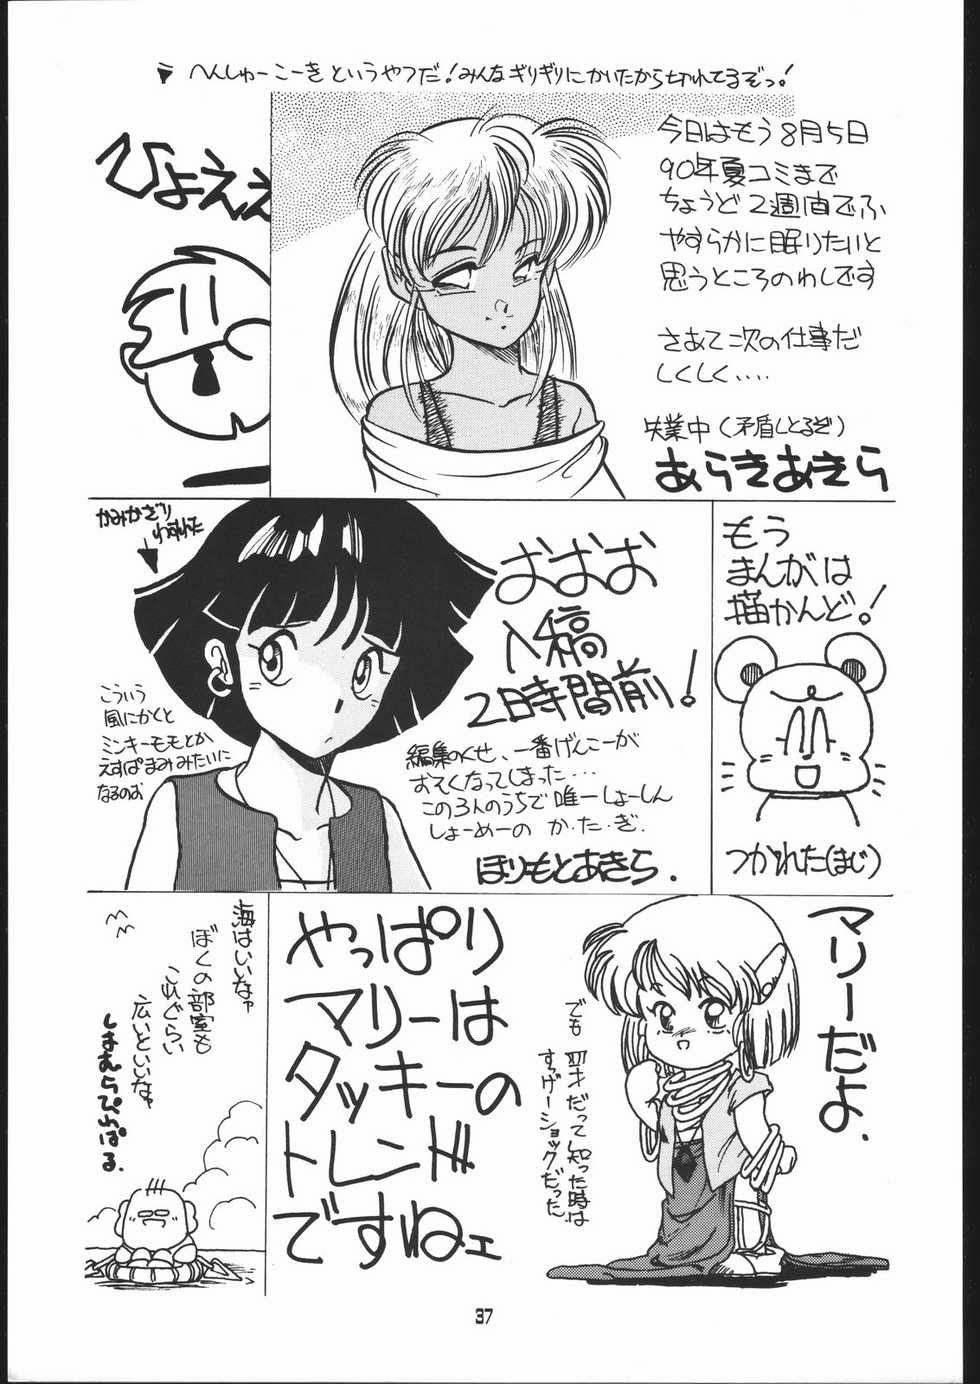 へんしゅーこーきというやつだ!みんなギリギリにかいたから切れてるぞっ!
ひょええ
今日はもう8月5日
90年夏コミまで
ちょうど2週間でふ
やすらかに眠りたいと
思うところのわしです
さあて次の仕事だ
しくしく....
失業中(矛盾しとるぞ)
あらきあきら
かみかざり
わすれた
おおお
入稿
2日時間前!
こういう
風にかくと
ミンキーモモとか
えすぱまみみたいに
なるのお
編集のくせ、一番げんこーが
おそくなってしまった...
この3人のうちで唯一しょーしん
しょーめーの か・た・ぎ.
ほりもとあきら.
もう
まんがは
描かんど!
つかれた(まじ)
海はいいなァ
ぼくの部室も
これぐらい
広いといいなァ
しまむらぴんぱる.
やっぱり
マリーは
タッキーの
トレンド
ですねェ
マリーだよ.
でも 四才だって知った時は
すっげーショックだった
37